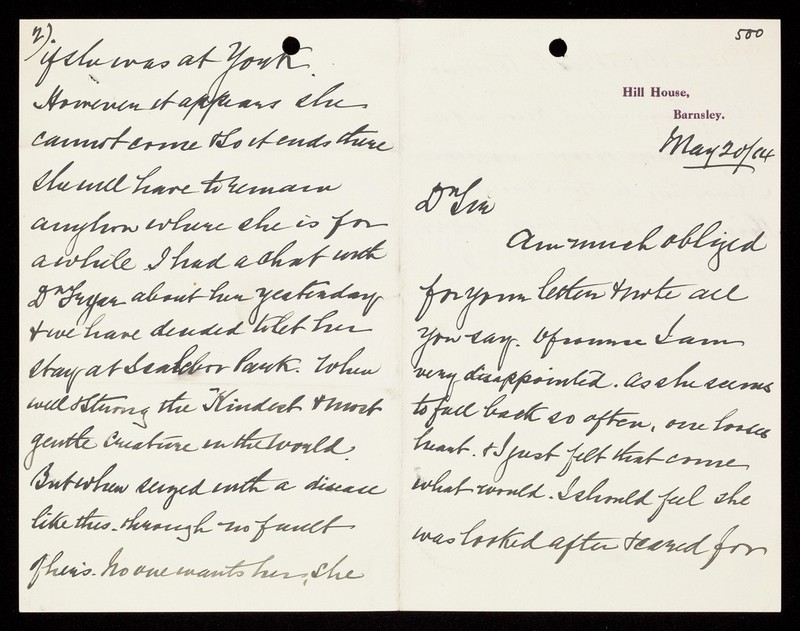 500
Hill House,
Barnsley.
May 20/04
Dr Sir
Am much obliged
for your letter & note all
you say. Of course I am
very disappointed. As she seems
to fall back so often, one looses
heart. & I just felt that come
what would. I should feel she
was looked after & cared for
2).
if she was at York.
However it appears she
cannot come & so it ends there
she will have to remain
anyhow where she is for
a while I had a chat with
Dr about her yesterday
& we have decided to let her
stay at Park. When
well & strong the Kindest & most
gentle Creature in the World.
But when seized with a disease
like this. through no fault
of hers. No one wants her, she